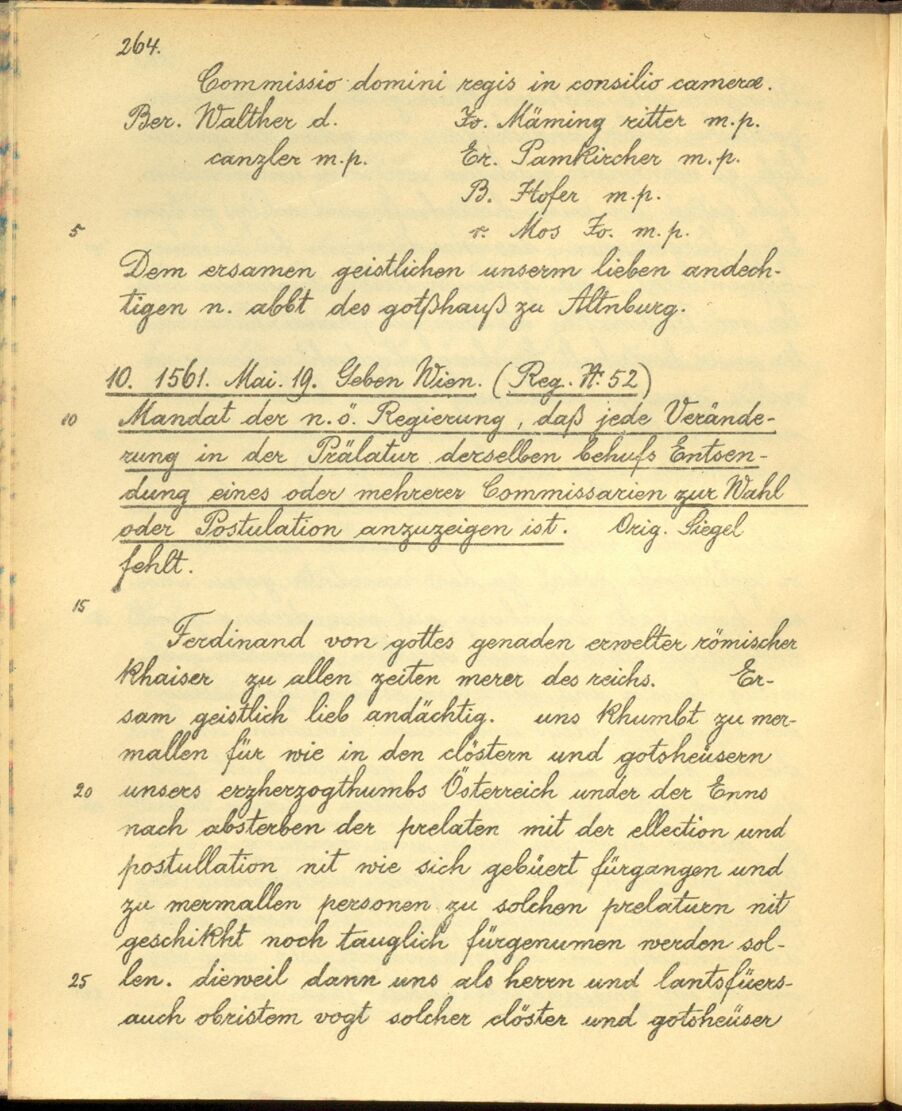 264.
Commissio domini regis in consilio cameræ.
Ber. Walther d. Jo. Mäming ritter m.p.
canzler m.p. Er. Pamkircher m.p.
B. Hofer m.p.
5 v. Mos Jo. m.p.
Dem ersamen geistlichen unserm lieben andech-
tigen n. abbt des gotßhauß zu Altnburg.
10. 1561. Mai. 19. Geben Wien. (Reg. N: 52)
10 Mandat der n. ö. Regierung, daß jede Verände-
rung in der Prälatur derselben behufs Entsen-
dung eines oder mehrerer Commissarien zur Wahl
oder Postulation anzuzeigen ist. Orig. Siegel
fehlt.
15
Ferdinand von gottes genaden erwelter römischer
khaiser zu allen zeiten merer des reichs. Er-
sam geistlich lieb andächtig. uns khumbt zu mer-
mallen für wie in den clöstern und gotsheüsern
20 unsers erzherzogthumbs Österreich under der Enns
nach absterben der prelaten mit der ellection und
postullation nit wie sich gebüert fürgangen und
zu mermallen personen zu solchen prelaturn nit
geschikht noch tauglich fürgenumen werden sol-
25 len. dieweil dann uns als herrn und lantsfüers-
auch obristem vogt solcher clöster und gotsheüser